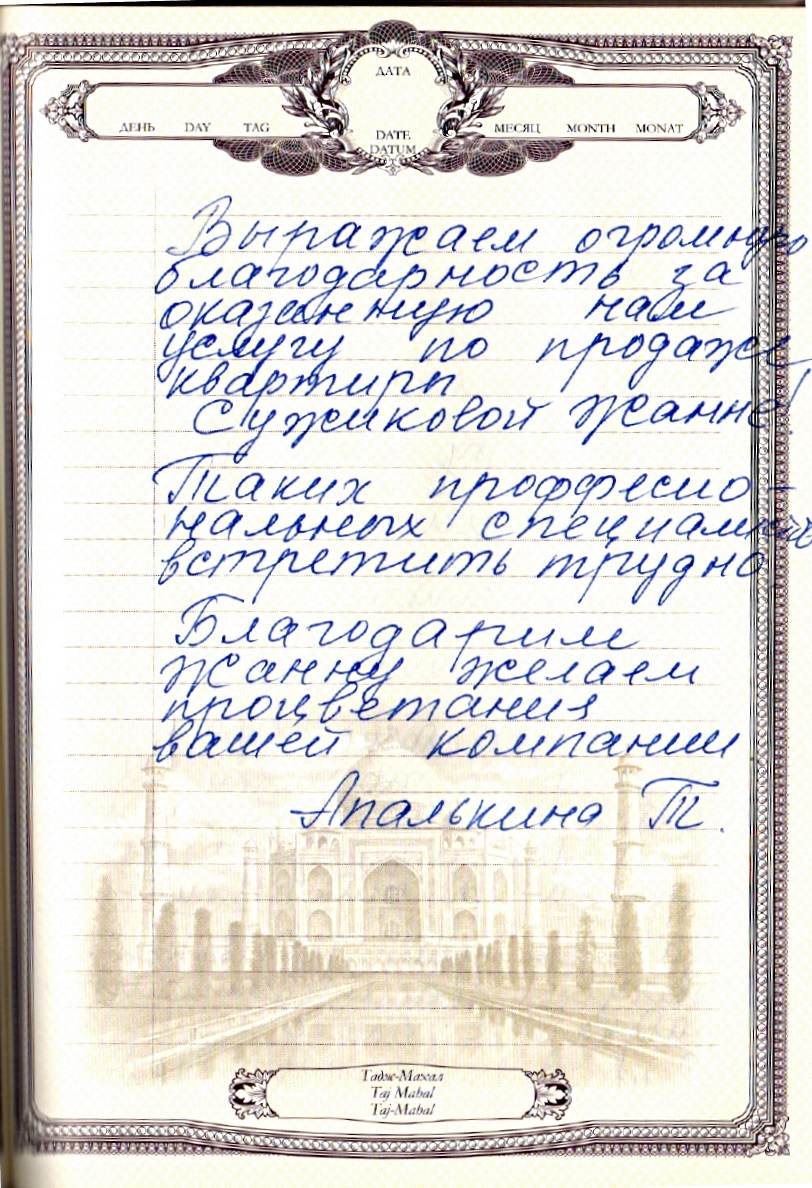 ДАТА
ДЕНЬ DAY TAG
DATE
DATUM
МЕСЯЦ MONTH MONAT
Выражаем огромную
благодарность за
оказанную нам
услугу по продаже
квартиры
Сужиковой Жанне!
Таких проффесио-
нальных специалистов
встретить трудно
Благодарим
Жанну желаем
процветания
вашей компании
Апалькина Т.
Тадж-Махал
Taj Mahal
Taj-Mahal